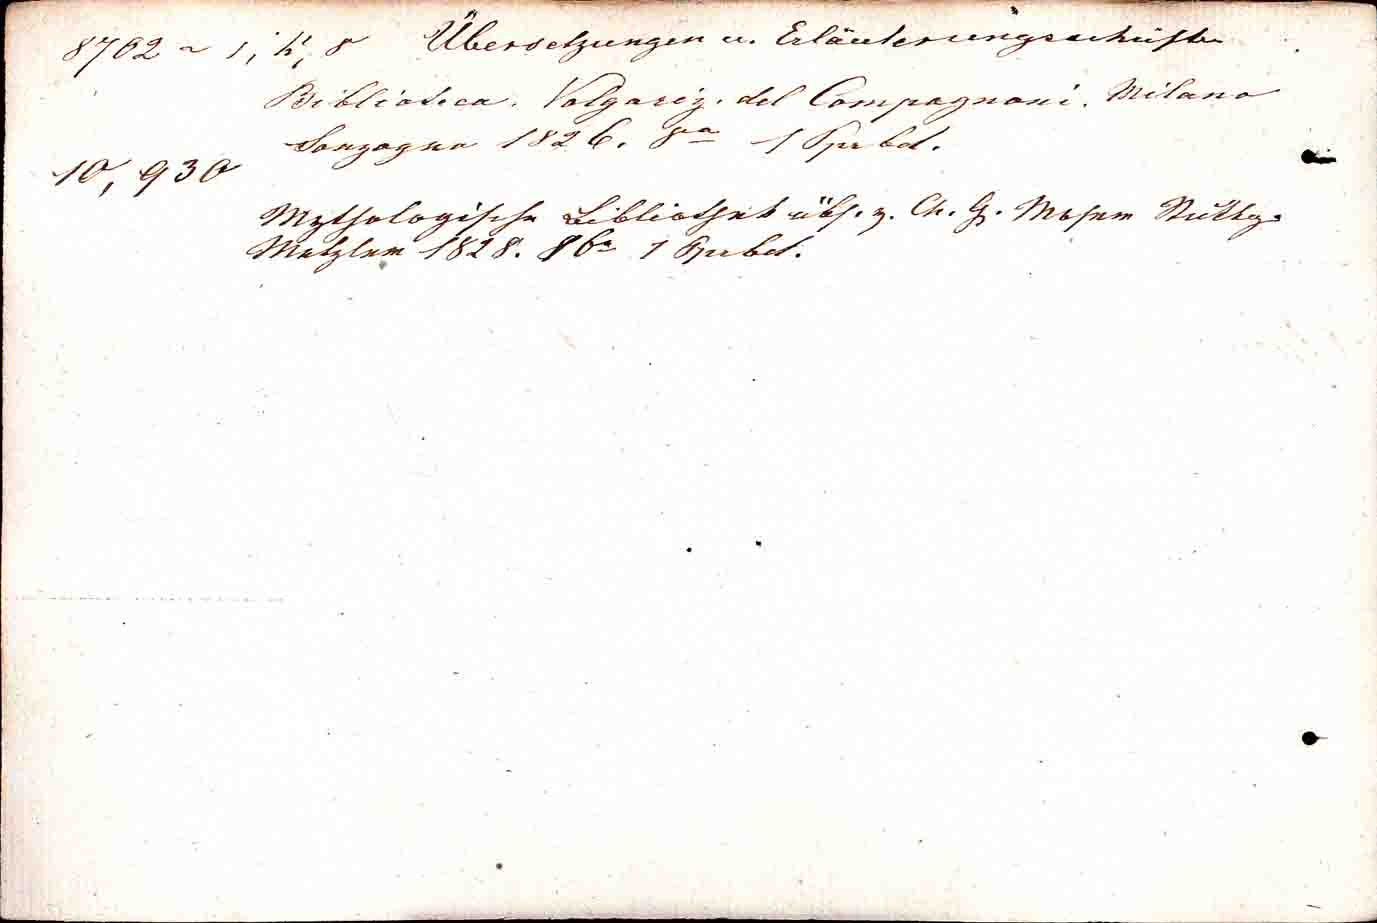 8762 ~ 1, h, 8 Übersetzungen u. Erläuterungsschriften
Biblioteca. Volgariz. del Compagnoni. Milano
Sonzogno 1826. 8º 1 Pprbd.
10, 930
Mythologische Bibliothek übs. v. Ch. G. Moser Stuttg.
Metzler 1828. 1 Pprbd.